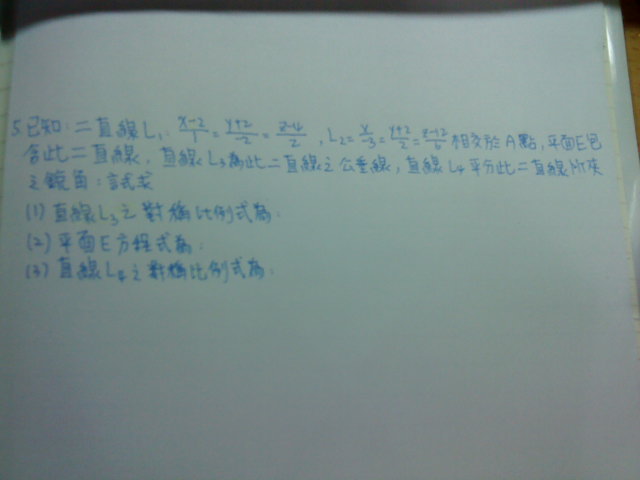 5.已知:二直線L₁: (x-2)/1=(y+2)/-2=(z-4)/2 , L₂=x/-3=(y+2)/2=(z-12)/6 相交於A點,平面E包
含此二直線,直線L₃為此二直線之公垂線,直線L₄平分此二直線所夾
之銳角:試求
(1)直線L₃之對稱比例式為:
(2)平面E方程式為:
(3)直線L₄之對稱比例式為: